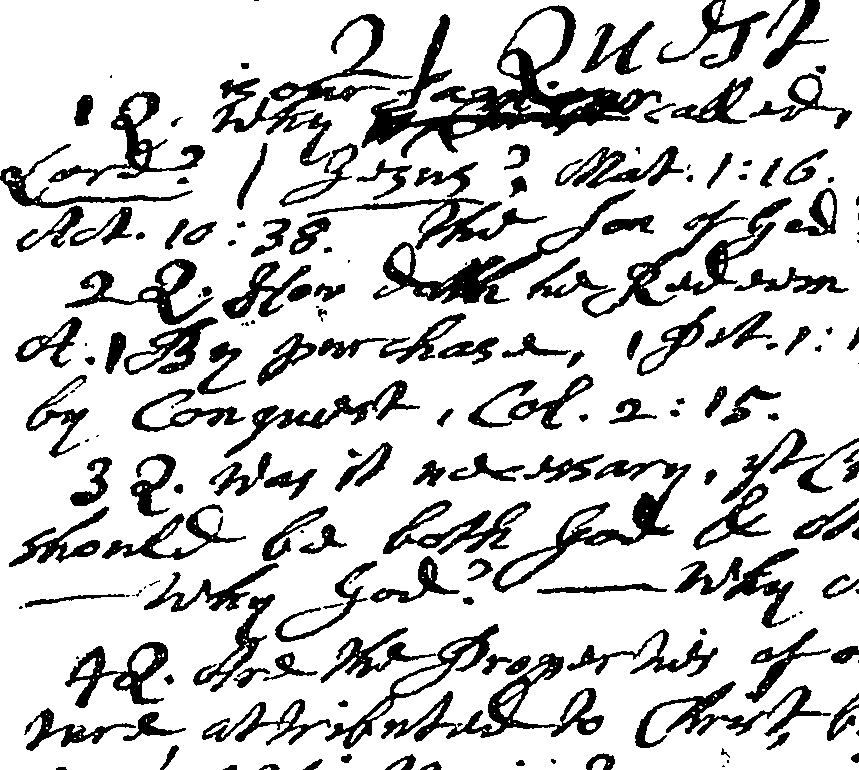 21 QUEST.
is our Saviour
1 Q. Why called,
Lord? / Jesus? Mat. 1:16.
Act. 10:38. The Son of God
2 Q. How doth he Redeem
A. 1 By purchase, 1 Pet. 1:1
by Conquest, Col. 2:15.
3 Q. Was it necessary, yt
should be both God &
— Why God? — Why
4 Q. Are the Properties of
ture, attributed to Christ, b